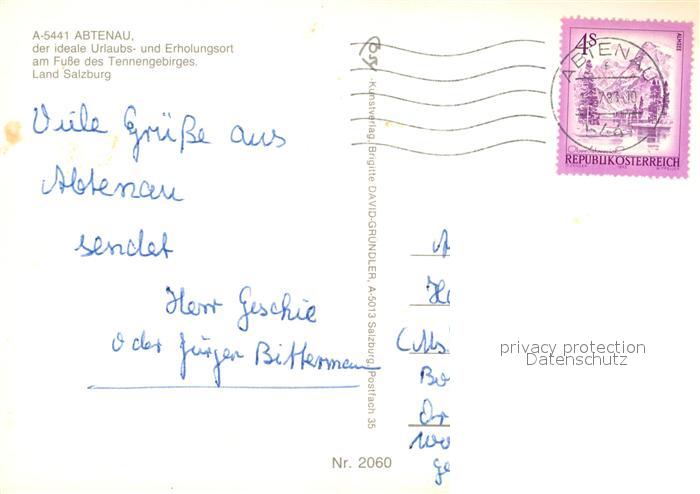 A-5441 ABTENAU,
der ideale Urlaubs- und Erholungsort
am Fuße des Tennengebirges.
Land Salzburg
Viele Grüße aus
Abtenau
sendet
Herr Geschie
oder Jürgen Bittermann
-Kunstverlag, Brigitte DAVID-GRÜNDLER, A-5013 Salzburg, Postfach 35
Nr. 2060
4S
ALMSEE
ABTENAU
REPUBLIK ÖSTERREICH
privacy protection
Datenschutz